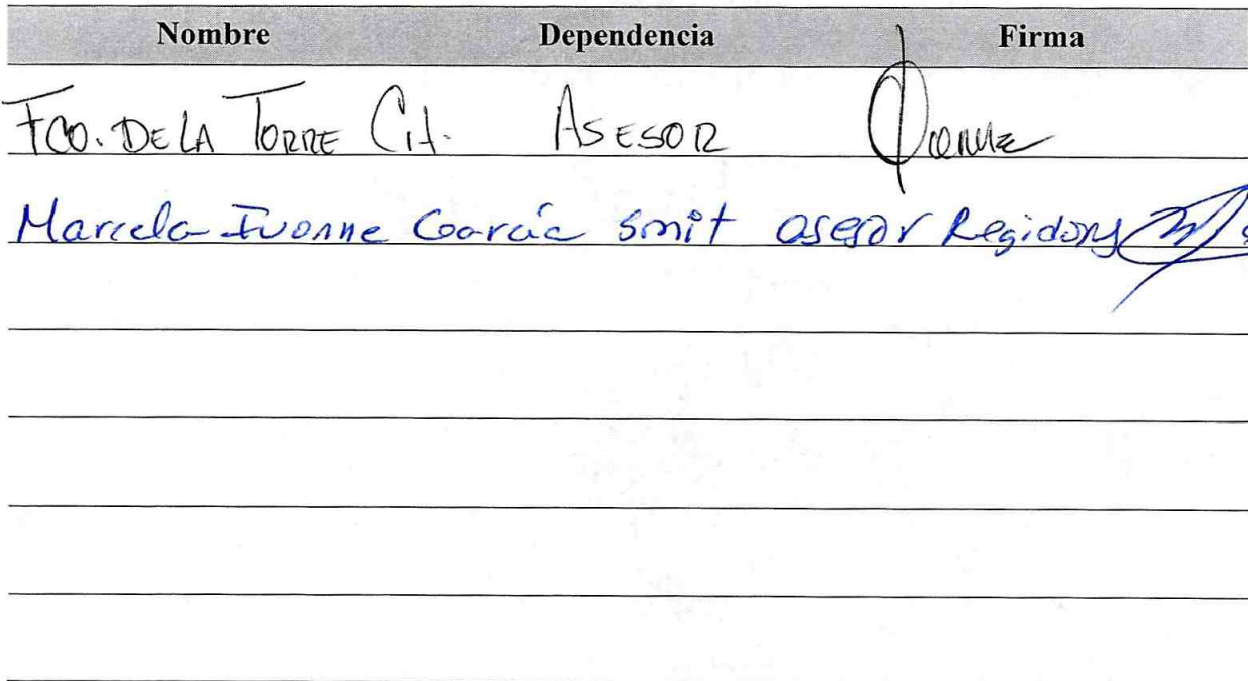 Nombre Dependencia Firma
Fco. DE LA TORRE Cit. ASESOR
Marcela Ivonne García Smit asesor